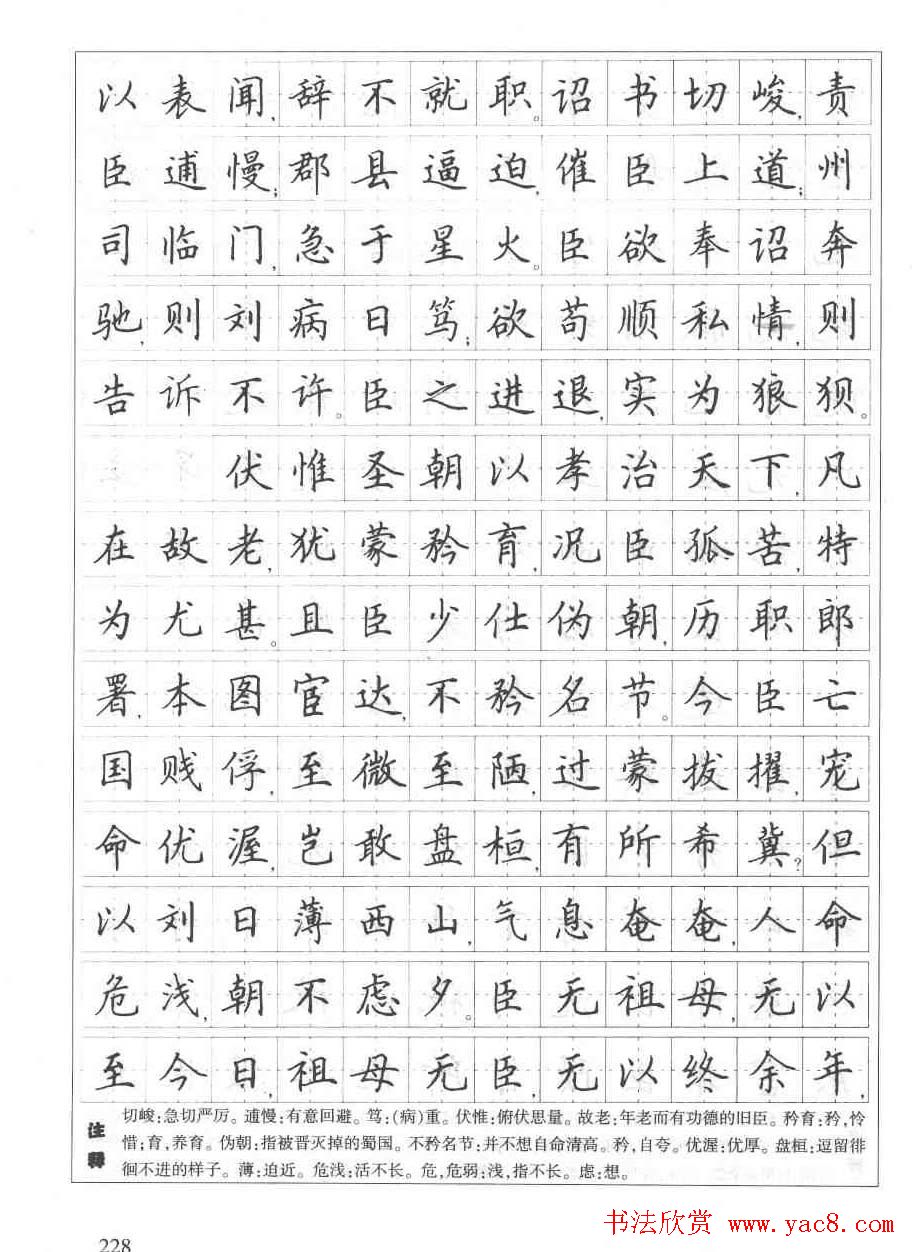 以表闻,辞不就职。诏书切峻,责
臣逋慢;郡县逼迫,催臣上道;州
司临门,急于星火。臣欲奉诏奔
驰,则刘病日笃;欲苟顺私情,则
告诉不许。臣之进退,实为狼狈。
伏惟圣朝以孝治天下,凡
在故老,犹蒙矜育,况臣孤苦,特
为尤甚。且臣少仕伪朝,历职郎
署,本图宦达,不矜名节。今臣亡
国贱俘,至微至陋,过蒙拔擢,宠
命优渥,岂敢盘桓,有所希冀?但
以刘日薄西山,气息奄奄,人命
危浅,朝不虑夕。臣无祖母,无以
至今日,祖母无臣,无以终余年,
注释
切峻:急切严厉。逋慢:有意回避。笃:(病)重。伏惟:俯伏思量。故老:年老而有功德的旧臣。矜育:矜,怜
惜;育,养育。伪朝:指被晋灭掉的蜀国。不矜名节:并不想自命清高。矜,自夸。优渥:优厚。盘桓:逗留徘
徊不进的样子。薄:迫近。危浅:活不长。危,危弱;浅,指不长。虑:想。
书法欣赏 www.yac8.com
228